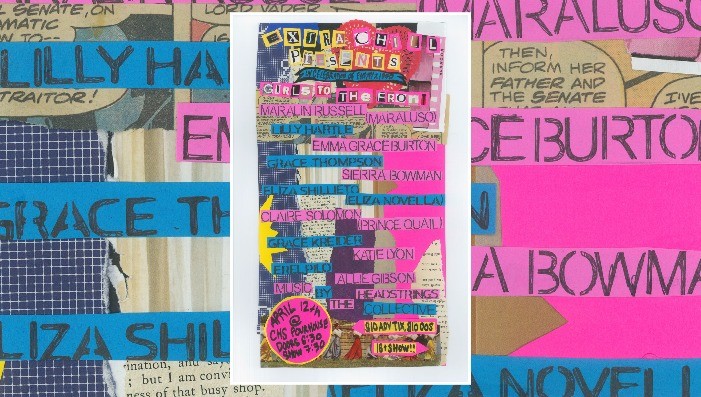 SENATE, ON
LORD VADER
LILLY HA
TRAITOR!
EM
GRACE TH
LIZA SHIL
ination, and say
; but I am convi
ness of that busy shop.
EXTRA CHILL
PRESENTS
GIRLS TO THE FRONT
MARALIN RUSSELL (MARALUSO)
LILLY HARTLE
EMMA GRACE BURTON
GRACE THOMPSON
SIERRA BOWMAN
ELIZA SHILLIETO
(ELIZA NOVELLA)
CLAIRE SOLOMON
(PRINCE QUAIL)
GRACE KREIDER
KATIE LYON
ALLIE GIBSON
MUSIC BY HEADSTRINGS
THE COLLECTIVE
APRIL 12TH
@
CHS POURHOUSE
DOORS 6:30
SHOW 7:30
$10 ADV TIX, $10 DOS
18+ SHOW!!
MARALUSO
THEN,
INFORM HER
FATHER AND
THE SENATE
I'VE
CE BURTON
N
A BOWMA
ELIZA NOVELL